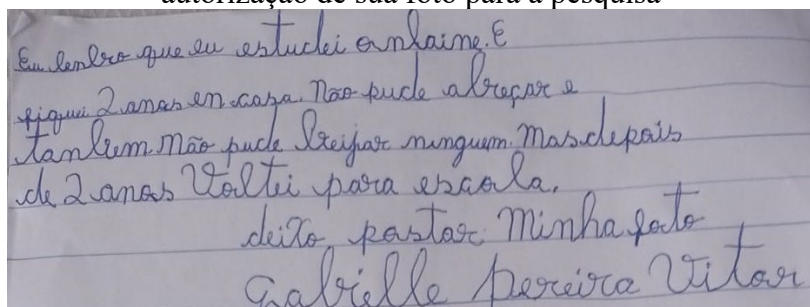 autorização de sua foto para a pesquisa
Eu lenbro que eu estudei onlaine. E
fiquei 2 anos en casa. Não pude abraçar e
tanbem não pude beijar ninguem. Mas depois
de 2 anos Voltei para escola.
deixo postar minha foto
Gabrielle Pereira Vitor